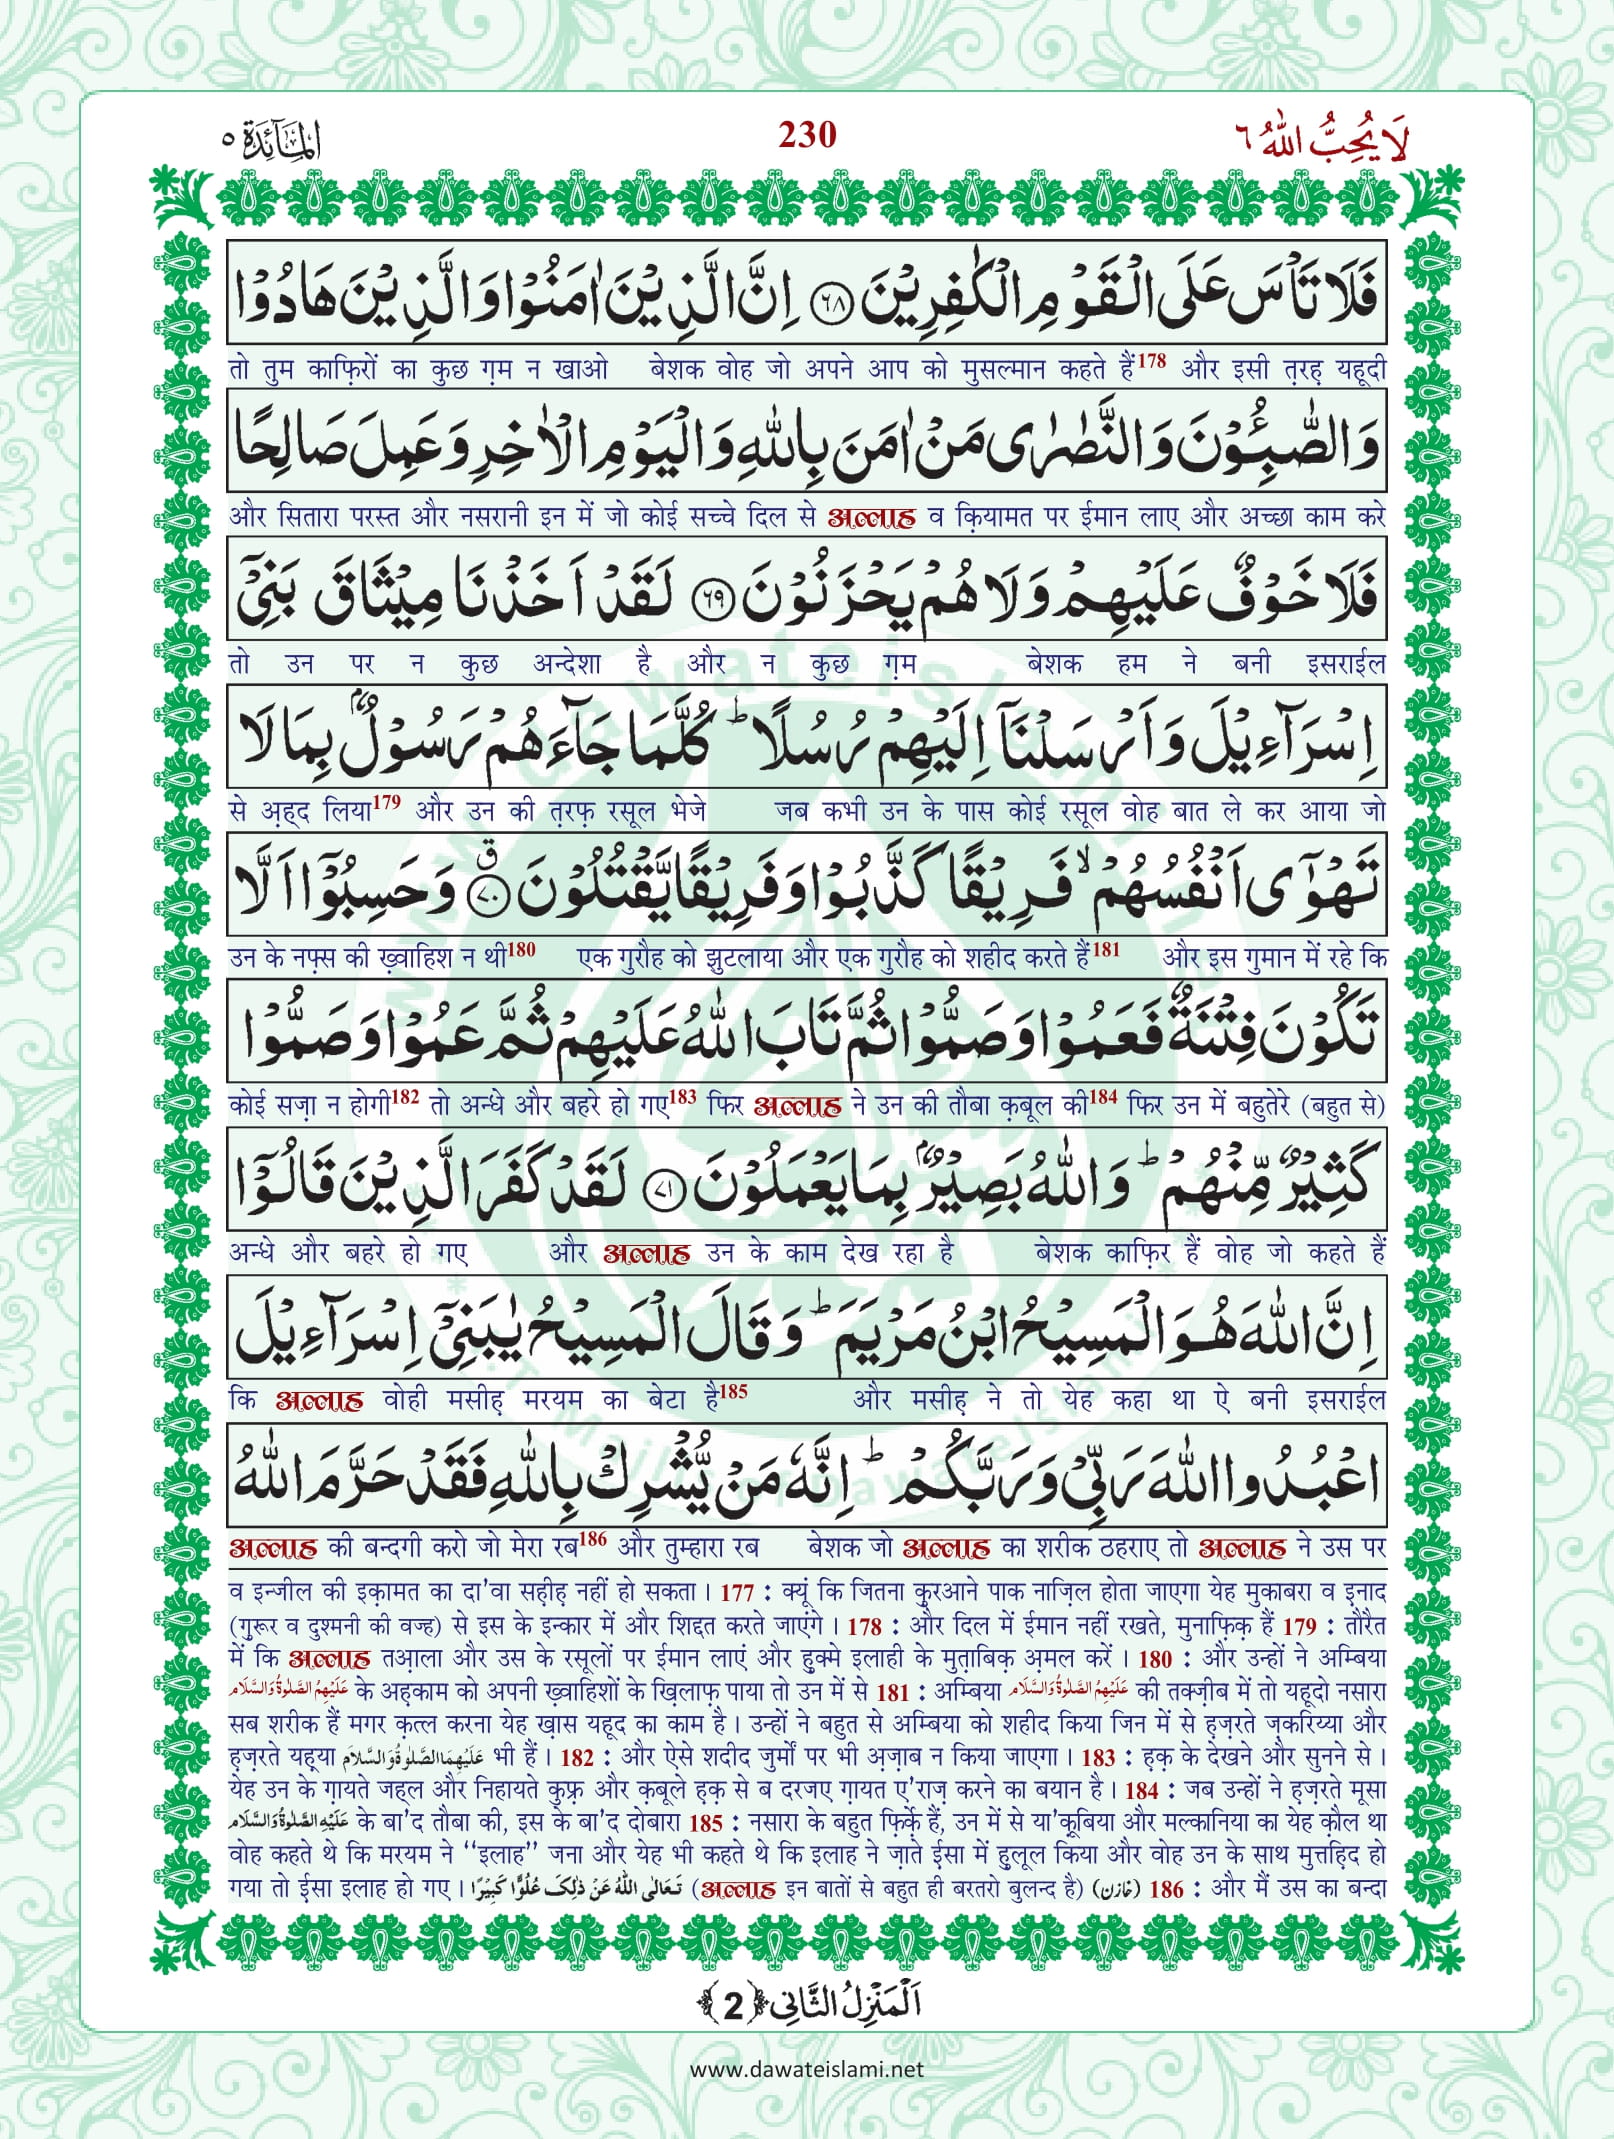 اَلْمَآئِدَة ٥
230
لَا يُحِبُّ اللّٰهُ ٦
فَلَا تَاْسَ عَلَى الْقَوْمِ الْكٰفِرِیْنَ ﴿٦٨﴾ اِنَّ الَّذِیْنَ اٰمَنُوْا وَ الَّذِیْنَ هَادُوْا
तो तुम काफ़िरों का कुछ ग़म न खाओ बेशक वोह जो अपने आप को मुसल्मान कहते हैं178 और इसी त़रह़ यहूदी
وَ الصّٰبِـُٔوْنَ وَ النَّصٰرٰى مَنْ اٰمَنَ بِاللّٰهِ وَ الْیَوْمِ الْاٰخِرِ وَ عَمِلَ صَالِحًا
और सितारा परस्त और नसरानी इन में जो कोई सच्चे दिल से अल्लाह व क़ियामत पर ईमान लाए और अच्छा काम करे
فَلَا خَوْفٌ عَلَیْهِمْ وَ لَا هُمْ یَحْزَنُوْنَ ﴿٦٩﴾ لَقَدْ اَخَذْنَا مِیْثَاقَ بَنِیْۤ
तो उन पर न कुछ अन्देशा है और न कुछ ग़म बेशक हम ने बनी इसराईल
اِسْرَآءِیْلَ وَ اَرْسَلْنَاۤ اِلَیْهِمْ رُسُلًاؕ كُلَّمَا جَآءَهُمْ رَسُوْلٌۢ بِمَا لَا
से अ़ह्द लिया179 और उन की त़रफ़ रसूल भेजे जब कभी उन के पास कोई रसूल वोह बात ले कर आया जो
تَهْوٰۤى اَنْفُسُهُمْۙ فَرِیْقًا كَذَّبُوْا وَ فَرِیْقًا یَّقْتُلُوْنَۗ ﴿٧٠﴾ وَ حَسِبُوْۤا اَلَّا
उन के नफ़्स की ख़्वाहिश न थी180 एक गुरौह को झुटलाया और एक गुरौह को शहीद करते हैं181 और इस गुमान में रहे कि
تَكُوْنَ فِتْنَةٌ فَعَمُوْا وَ صَمُّوْا ثُمَّ تَابَ اللّٰهُ عَلَیْهِمْ ثُمَّ عَمُوْا وَ صَمُّوْا
कोई सज़ा न होगी182 तो अन्धे और बहरे हो गए183 फिर अल्लाह ने उन की तौबा क़बूल की184 फिर उन में बहुतेरे (बहुत से)
كَثِیْرٌ مِّنْهُمْؕ وَ اللّٰهُ بَصِیْرٌۢ بِمَا یَعْمَلُوْنَ ﴿٧١﴾ لَقَدْ كَفَرَ الَّذِیْنَ قَالُوْۤا
अन्धे और बहरे हो गए और अल्लाह उन के काम देख रहा है बेशक काफ़िर हैं वोह जो कहते हैं
اِنَّ اللّٰهَ هُوَ الْمَسِیْحُ ابْنُ مَرْیَمَؕ وَ قَالَ الْمَسِیْحُ یٰبَنِیْۤ اِسْرَآءِیْلَ
कि अल्लाह वोही मसीह़ मरयम का बेटा है185 और मसीह़ ने तो येह कहा था ऐ बनी इसराईल
اعْبُدُوا اللّٰهَ رَبِّیْ وَ رَبَّكُمْؕ اِنَّهٗ مَنْ یُّشْرِكْ بِاللّٰهِ فَقَدْ حَرَّمَ اللّٰهُ
अल्लाह की बन्दगी करो जो मेरा रब186 और तुम्हारा रब बेशक जो अल्लाह का शरीक ठहराए तो अल्लाह ने उस पर
व इन्जील की इक़ामत का दा'वा सह़ीह़ नहीं हो सकता । 177 : क्यूं कि जितना क़ुरआने पाक नाज़िल होता जाएगा येह मुकाबरा व इ़नाद
(गुरूर व दुश्मनी की वज्ह) से इस के इन्कार में और शिद्दत करते जाएंगे । 178 : और दिल में ईमान नहीं रखते, मुनाफ़िक़ हैं 179 : तौरैत
में कि अल्लाह तआ़ला और उस के रसूलों पर ईमान लाएं और हुक्मे इलाही के मुत़ाबिक़ अ़मल करें । 180 : और उन्हों ने अम्बिया
عَلَيْهِمُ الصَّلٰوةُ وَالسَّلَام के अह़काम को अपनी ख़्वाहिशों के ख़िलाफ़ पाया तो उन में से 181 : अम्बिया عَلَيْهِمُ الصَّلٰوةُ وَالسَّلَام की तक्ज़ीब में तो यहूदो नसारा
सब शरीक हैं मगर क़त्ल करना येह ख़ास यहूद का काम है । उन्हों ने बहुत से अम्बिया को शहीद किया जिन में से ह़ज़रते ज़करिय्या और
ह़ज़रते यह़या عَلَيْهِمَا الصَّلٰوةُ وَالسَّلَام भी हैं । 182 : और ऐसे शदीद जुर्मों पर भी अ़ज़ाब न किया जाएगा । 183 : ह़क़ के देखने और सुनने से ।
येह उन के ग़ायते जह्ल और निहायते कुफ़्र और क़बूले ह़क़ से ब दरजए ग़ायत ए'राज़ करने का बयान है । 184 : जब उन्हों ने ह़ज़रते मूसा
عَلَيْهِ الصَّلٰوةُ وَالسَّلَام के बा'द तौबा की, इस के बा'द दोबारा 185 : नसारा के बहुत फ़िर्क़े हैं, उन में से या'क़ूबिया और मल्कानिया का येह क़ौल था
वोह कहते थे कि मरयम ने ‘‘इलाह’’ जना और येह भी कहते थे कि इलाह ने ज़ाते ईसा में ह़ुलूल किया और वोह उन के साथ मुत्तह़िद हो
गया तो ईसा इलाह हो गए । تَعَالَى اللّٰهُ عَنْ ذٰلِكَ عُلُوًّا كَبِيْرًا (अल्लाह इन बातों से बहुत ही बरतरो बुलन्द है) (خازن) 186 : और मैं उस का बन्दा
اَلْمَنْزِلُ الثَّانِي ﴿2﴾
www.dawateislami.net